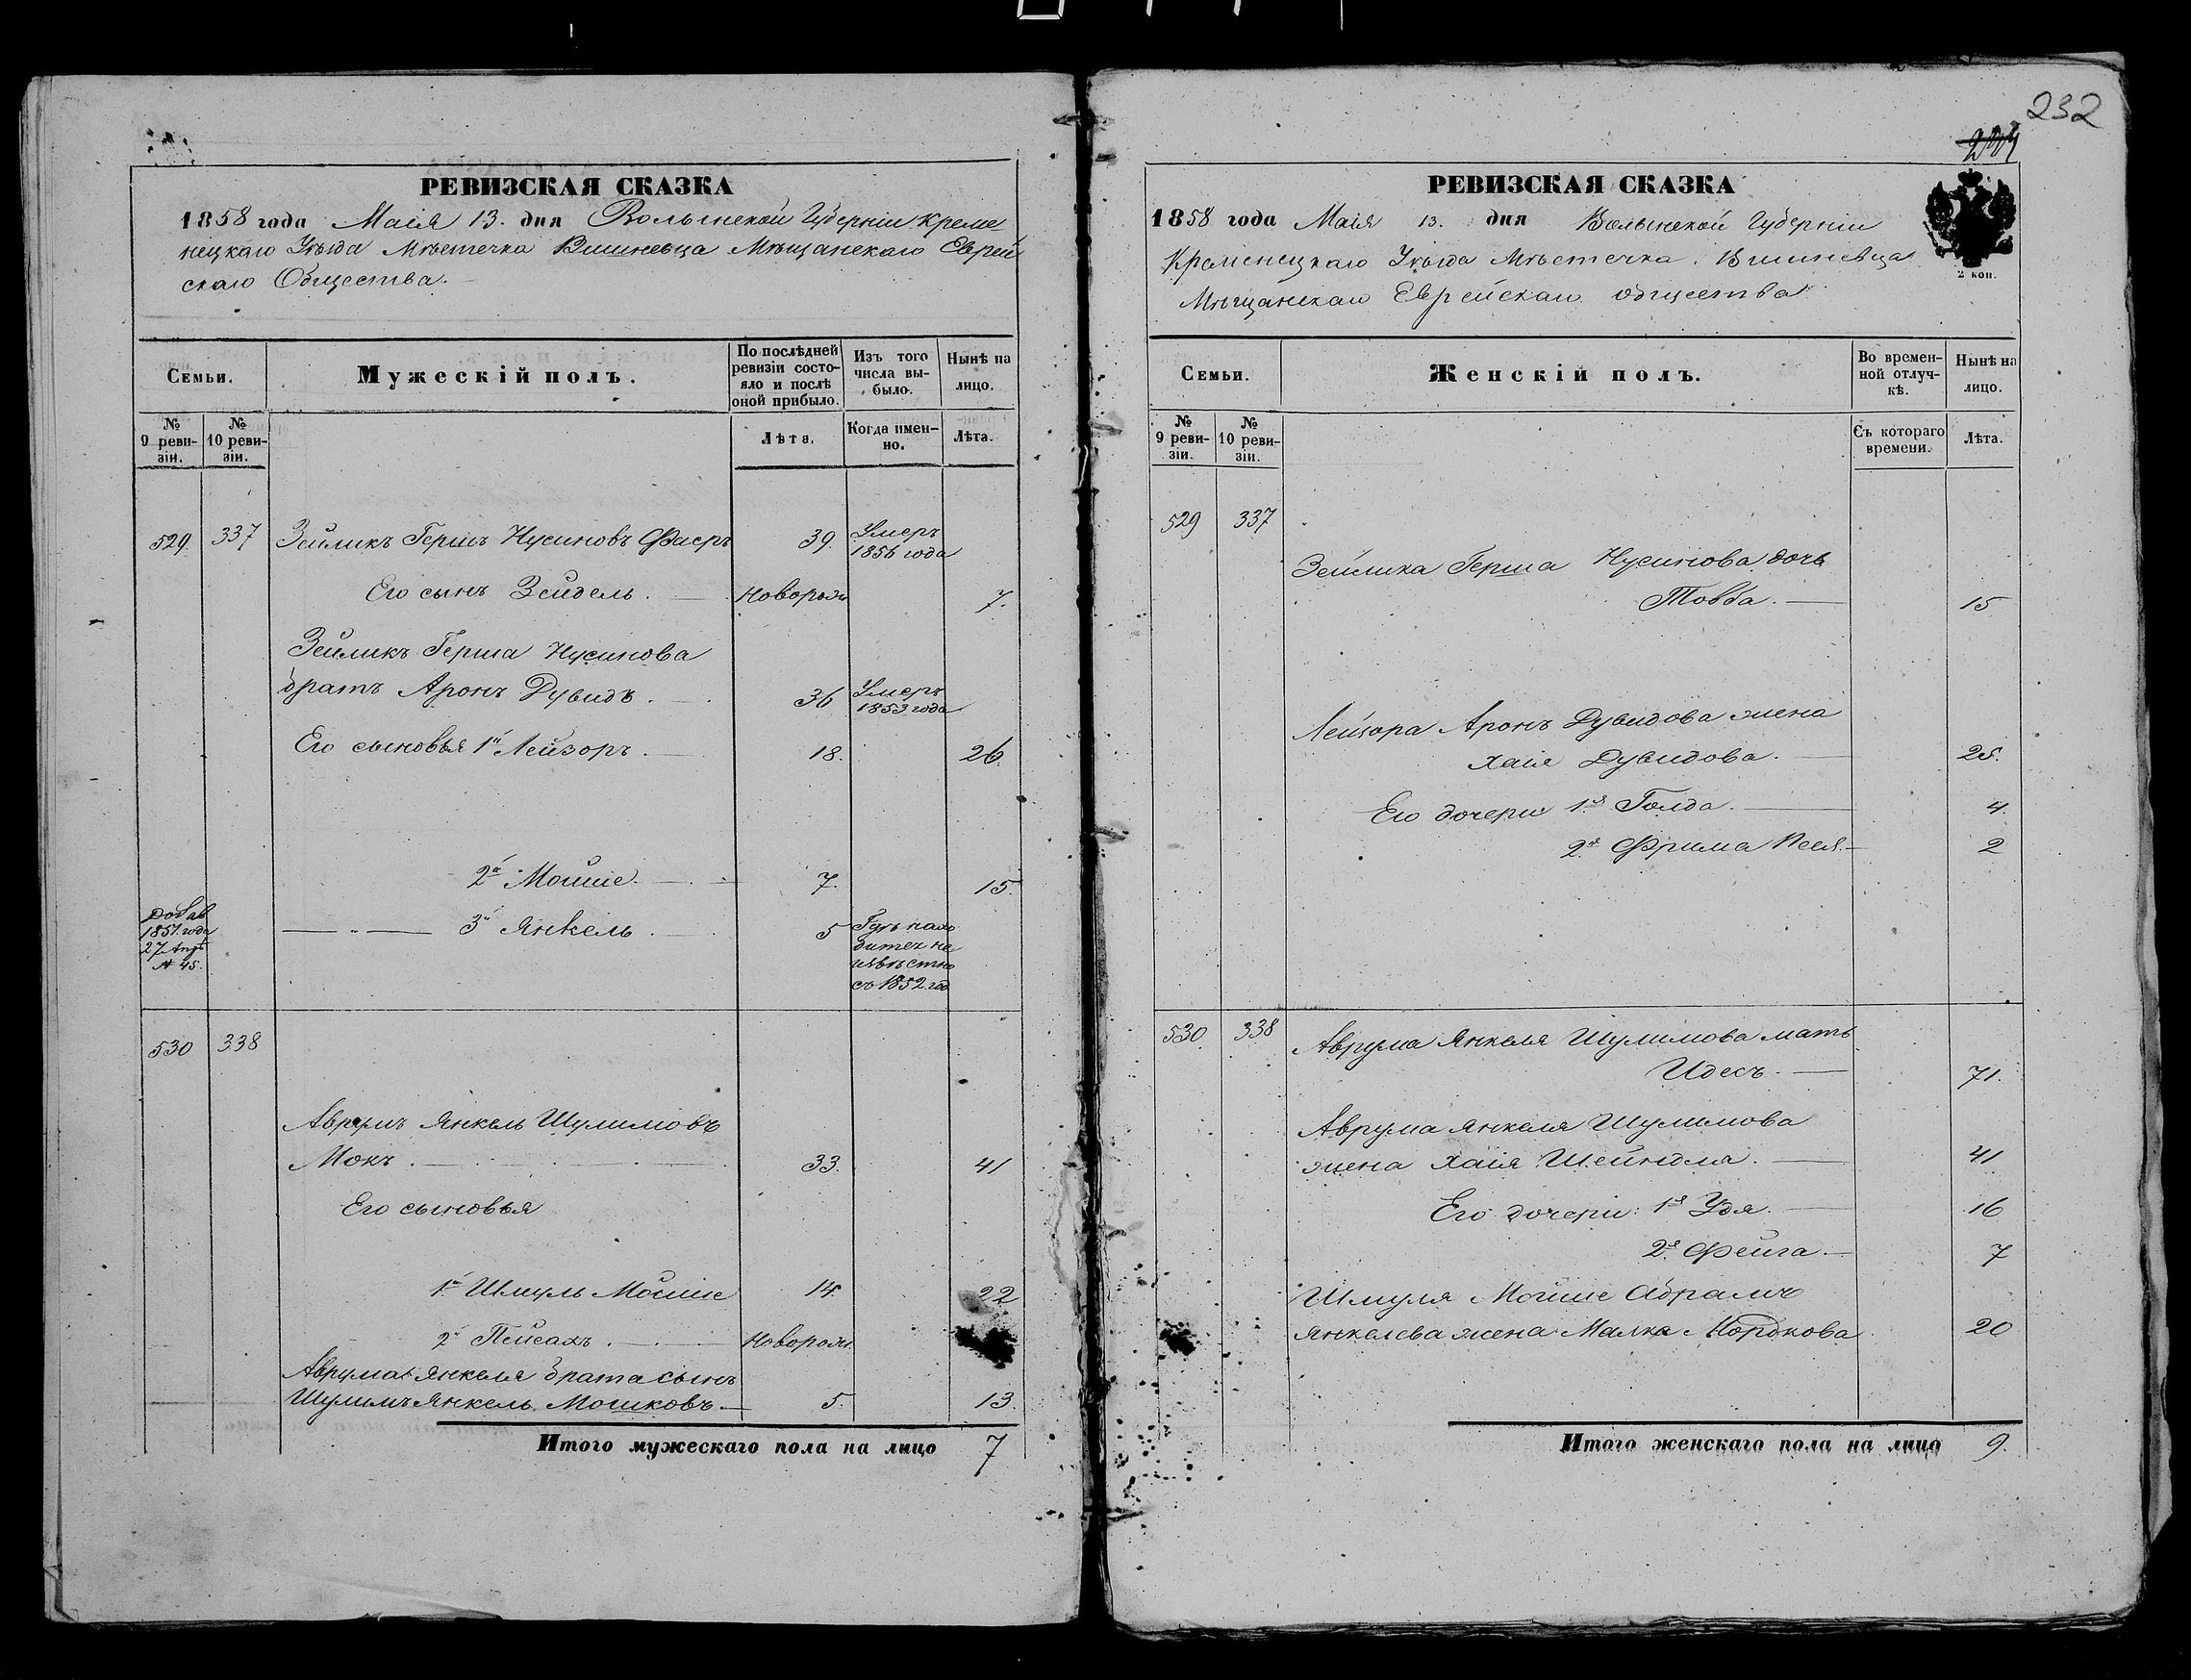 232
РЕВИЗСКАЯ СКАЗКА
1858 года Маія 13. дня Волынской Губерніи Креме
нецкаго Уѣзда Мѣстечка Вишневца Мѣщанскаго Еврей
скаго Общества.
Семьи.
Мужескій полъ.
По послѣдней ревизіи состояло и послѣ оной прибыло.
Изъ того числа выбыло.
Нынѣ на лицо.
№ 9 ревизіи.
№ 10 ревизіи.
Лѣта.
Когда именно.
Лѣта.
529. 337 Зейликъ Гершъ Нусиновъ Фаеръ 39. Умеръ 1856 года
Его сынъ Зейдель. новорож 7.
Зейликъ Герша Нусинова
братъ Аронъ Дувидъ. 36 Умеръ 1853 года
Его сыновья 1й Лейзоръ. 18. 26.
2й Мойше. 7. 15.
Добав 1851. года № 45.
3й Янкель. 5 находится неизвѣстно съ 1852. год
530 338
Аврумъ Янкель Шулимовъ
Мокъ. 33. 41
Его сыновья
1й Шмуль Мойше 14. 22
2й Пейсахъ. новорож.
Аврума Янкеля брата сынъ
Шулимъ Янкель Мошковъ. 5. 13.
Итого мужескаго пола на лицо 7
РЕВИЗСКАЯ СКАЗКА
1858 года Маія 13. дня Волынской Губерніи
Кременецкаго Уѣзда Мѣстечка Вишневца
Мѣщанскаго Еврейскаго общества
2 коп.
Семьи.
Женскій полъ.
Во временной отлучкѣ.
Нынѣ на лицо.
№ 9 ревизіи.
№ 10 ревизіи.
Съ котораго времени.
Лѣта.
529 337
Зейлика Герша Нусинова дочь
Товба. 15
Лейзора Аронъ Дувидова жена
Хаія Дувидова. 25.
Его дочери 1я Голда. 4.
2я Фрима 2
530 338 Аврума Янкеля Шулимова мать
Идесъ. 71.
Аврума Янкеля Шулимова
жена Хаія Шейндля. 41
Его дочери: 1я Удя. 16
2я Фейга 7
Шмуля Мойше Абрамъ
Янкелева жена Малка Мордкова 20
Итого женскаго пола на лицо 9.